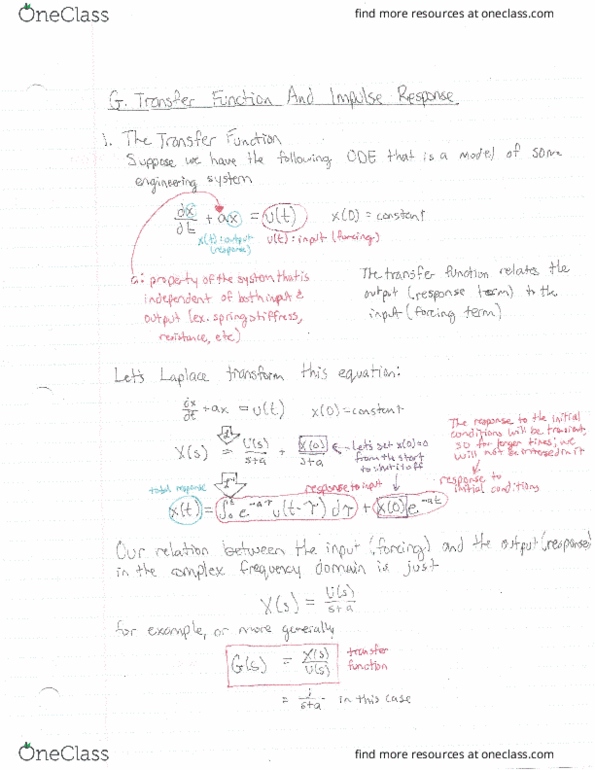 OneClass
find more resources at oneclass.com
G. Transfer Function And Impulse Response
1. The Transfer Function
Suppose we have the following ODE that is a model of some
engineering system
dx/dt + ax = u(t) x(0) = constant
x(t): output (response) u(t): input (forcing)
a: property of the system that is
independent of both input &
output (ex. spring stiffness,
resistance, etc)
The transfer function relates the
output (response term) to the
input (forcing term)
Let's Laplace transform this equation:
dx/dt + ax = u(t) x(0) - constant
X(s) = U(s)/s+a + x(0)/s+a
← Let's set x(0)=0
from the start
to shut it off
The response to the initial
conditions will be transient,
so for longer times, we
will not be interested in it
total response
response to input
response to
initial conditions
x(t) = ∫₀ᵗ e^-aτ u(t-τ) dτ + x(0) e^-at
Our relation between the input (forcing) and the output (response)
in the complex frequency domain is just
X(s) = U(s)/s+a
for example, or more generally
G(s) = X(s)/U(s) transfer
function
= 1/s+a in this case
OneClass
find more resources at oneclass.com